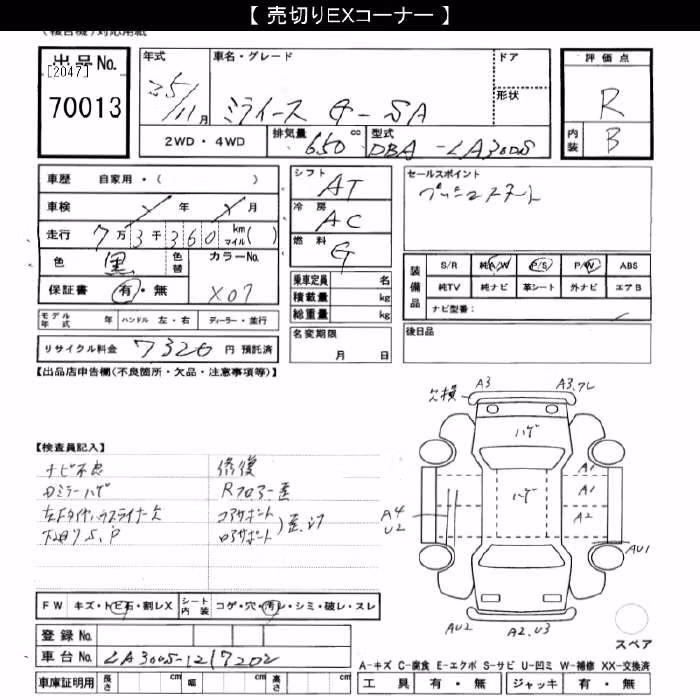 【 売切りEXコーナー 】
出品No.
[2047]
70013
年式
25/11月
車名・グレード
ミライース G-SA
ドア
形状
評価点
R
内装
B
2WD・4WD
排気量
650 cc
型式
DBA-LA300S
車歴 自家用・( )
車検 年 月
走行 7万3千360 km マイル( )
色 黒 色替
カラーNo.
X07
保証書 有・無
シフト
AT
冷房
AC
燃料
G
乗車定員 名
積載量 kg
総重量 kg
セールスポイント
プッシュスタート
装備品
S/R 純A/W P/S P/W ABS
純TV 純ナビ 革シート 外ナビ エアB
ナビ型番:
モデル年式 年 ハンドル 左・右 ディーラー・並行
リサイクル料金 7320 円 預託済
名変期限
月 日
後日品
【出品店申告欄(不良箇所・欠品・注意事項等)】
【検査員記入】
ナビ不良
修復
Rフロアー歪
下回りS、P
欠損
A3
ハゲ
ハゲ
A1
A1
A2
A4
U2
AU1
AU2
A2、U3
スペア
FW キズ・トビ石・割レX シート内装 コゲ・穴・汚レ・シミ・破レ・スレ
登録No.
車台No. LA300S-1217202
車庫証明用 長さ cm 幅 cm 高さ cm
A-キズ C-腐食 E-エクボ S-サビ U-凹ミ W-補修 XX-交換済
工具 有・無 ジャッキ 有・無